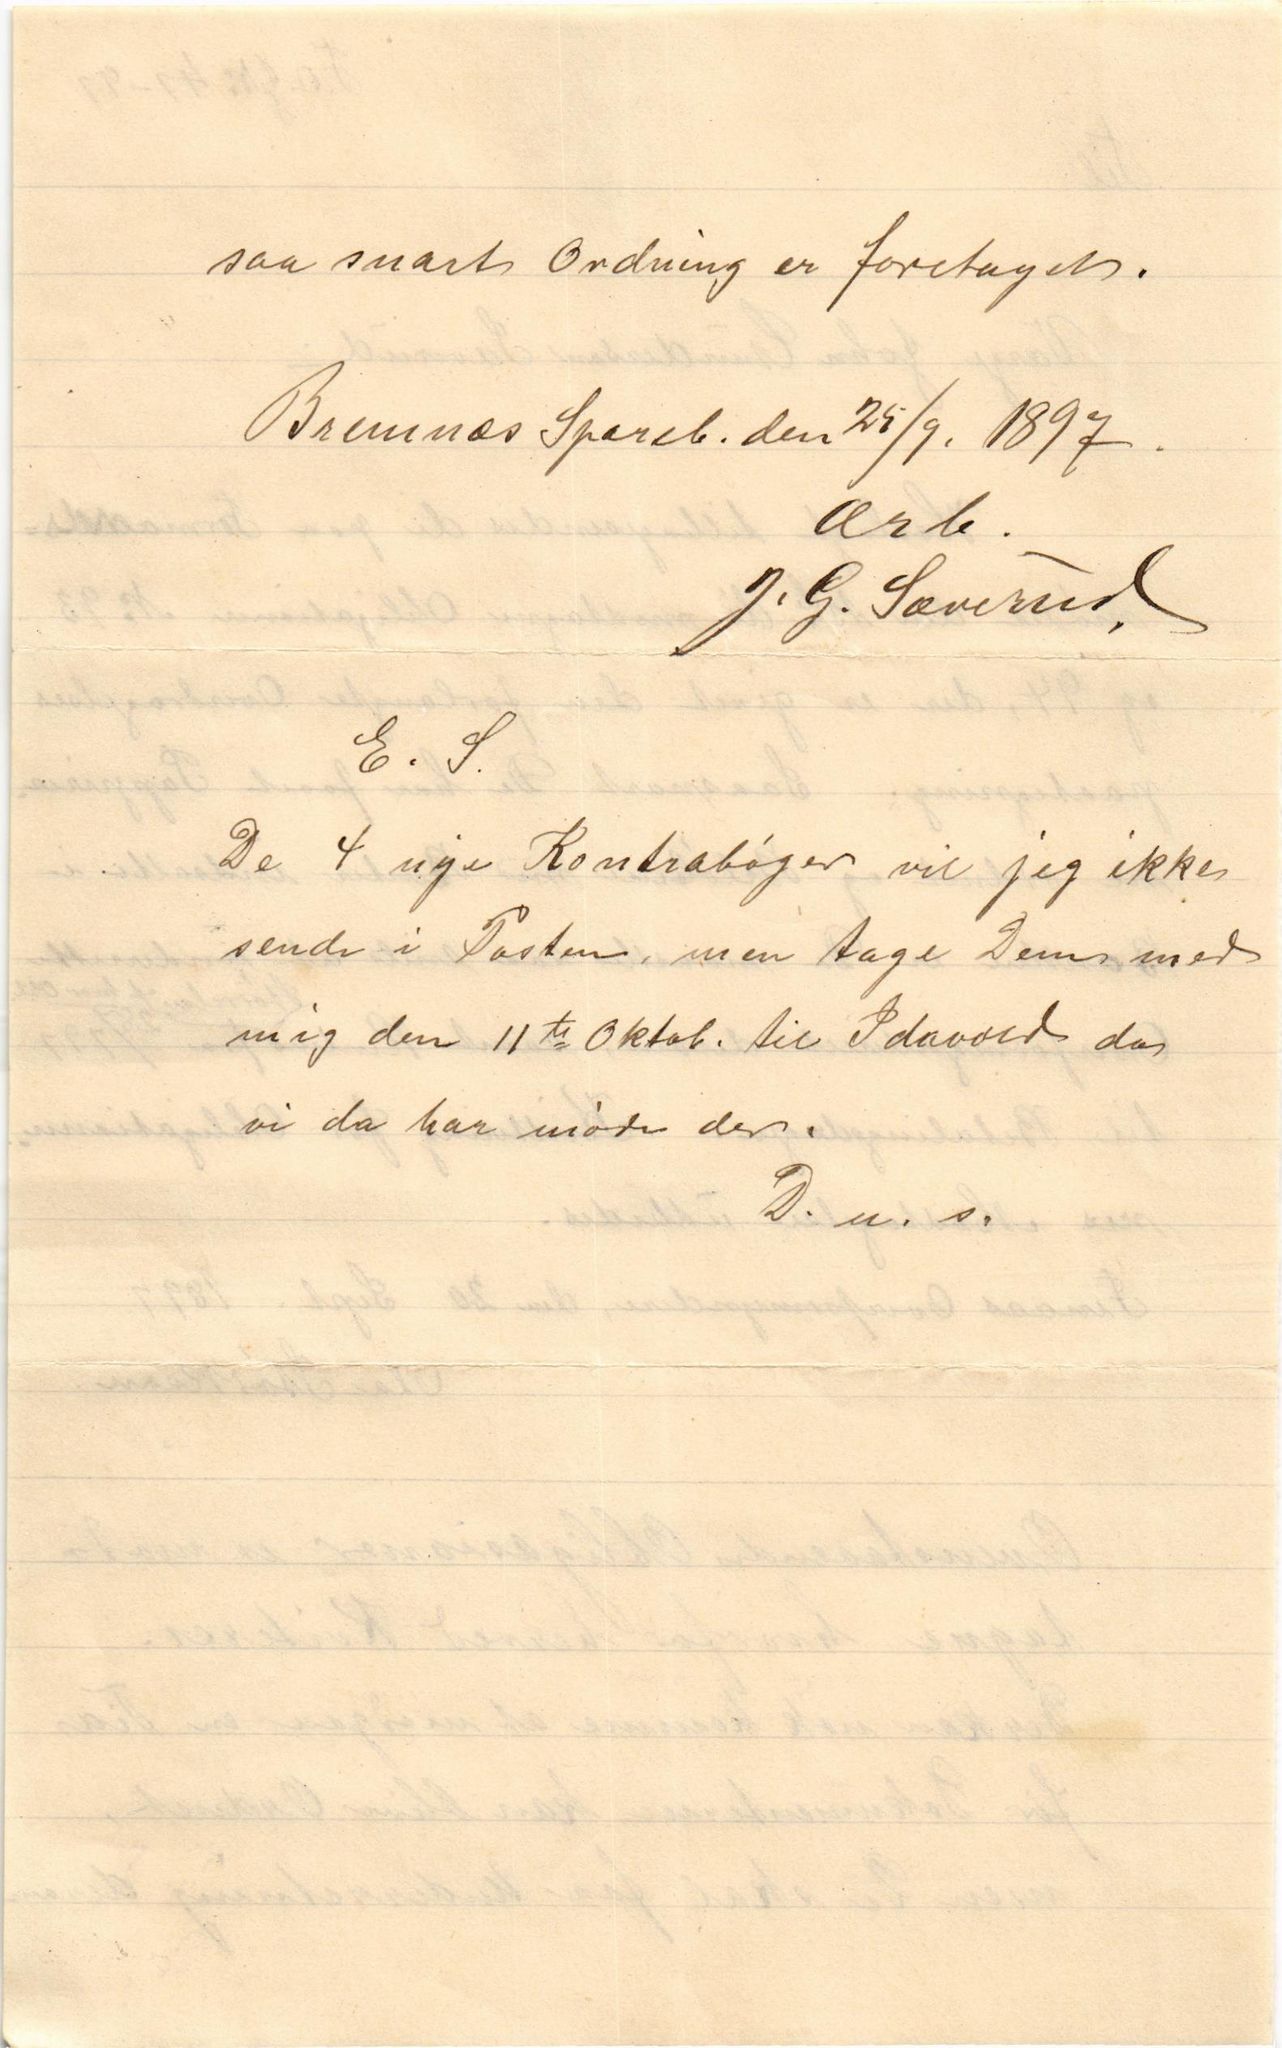 saa snart Ordning er foretaget.
Bremnæs Spareb. den 25/9. 1897.
Ærb.
J. G. Sæverud,
E. S.
De 4 nye Kontrabøger vil jeg ikke
sende i Posten, men tage Dem med
mig den 11te Oktob. til Idavold da
vi da har møde der.
D. u. s.